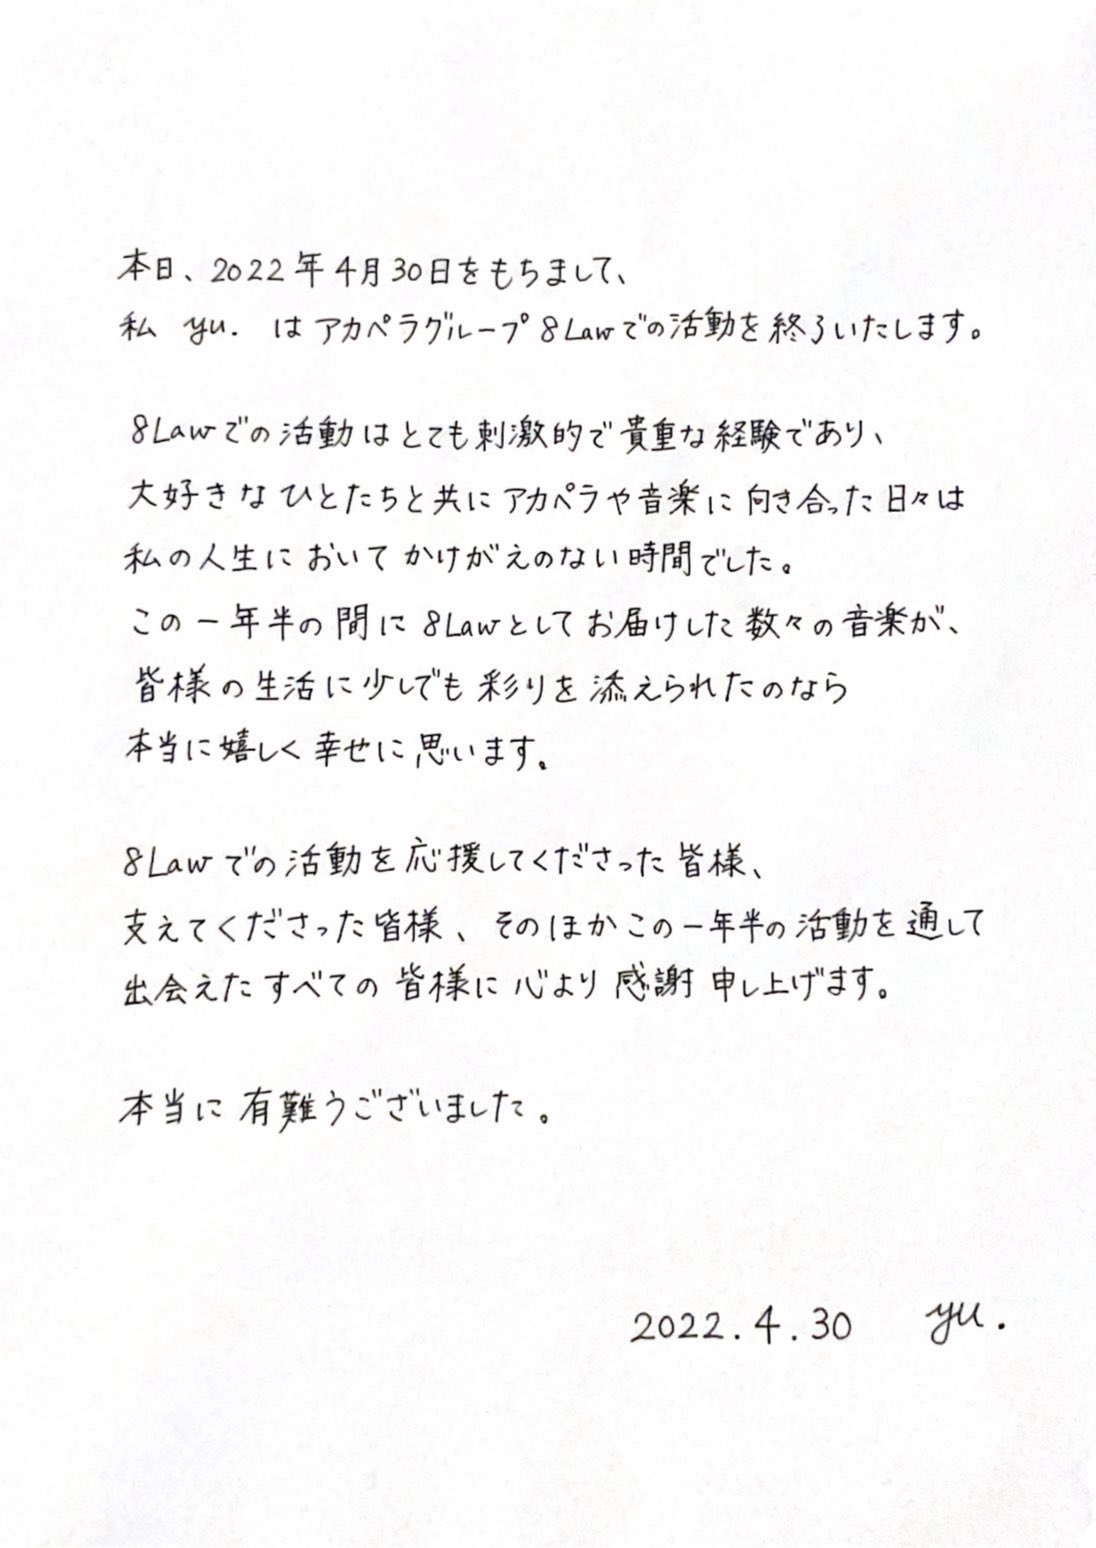 本日、2022年4月30日をもちまして、
私 yu. はアカペラグループ8Lawでの活動を終了いたします。
8Lawでの活動はとても刺激的で貴重な経験であり、
大好きなひとたちと共にアカペラや音楽に向き合った日々は
私の人生においてかけがえのない時間でした。
この一年半の間に8Lawとしてお届けした数々の音楽が、
皆様の生活に少しでも彩りを添えられたのなら
本当に嬉しく幸せに思います。
8Lawでの活動を応援してくださった皆様、
支えてくださった皆様、そのほかこの一年半の活動を通して
出会えたすべての皆様に心より感謝申し上げます。
本当に有難うございました。
2022.4.30 yu.